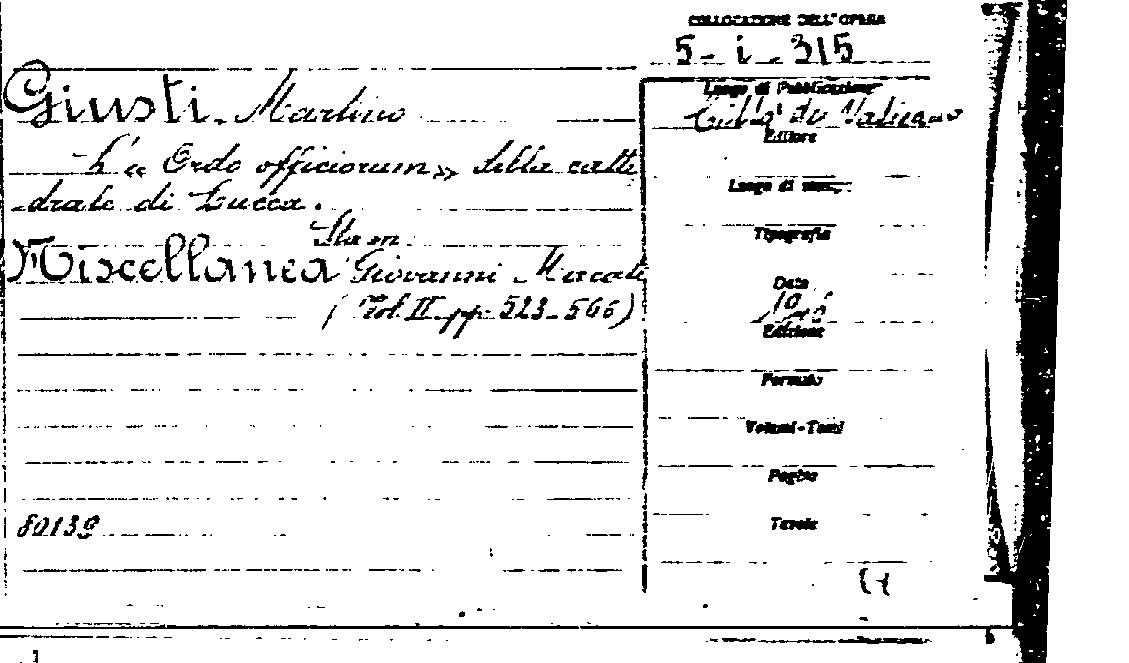 COLLOCAZIONE DELL'OPERA
5-i-315
Giusti. Martino
L'« Ordo officiorum» della catte
drale di Lucca.
Sta in
Miscellanea Giovanni Mercati
( Vol. II pp. 523-566)
80139
Luogo di Pubblicazione
Città du Vaticano
Editore
Luogo di
Tipografia
Data
1946
Edizione
Formato
Volumi-Tomi
Pagine
Tavole